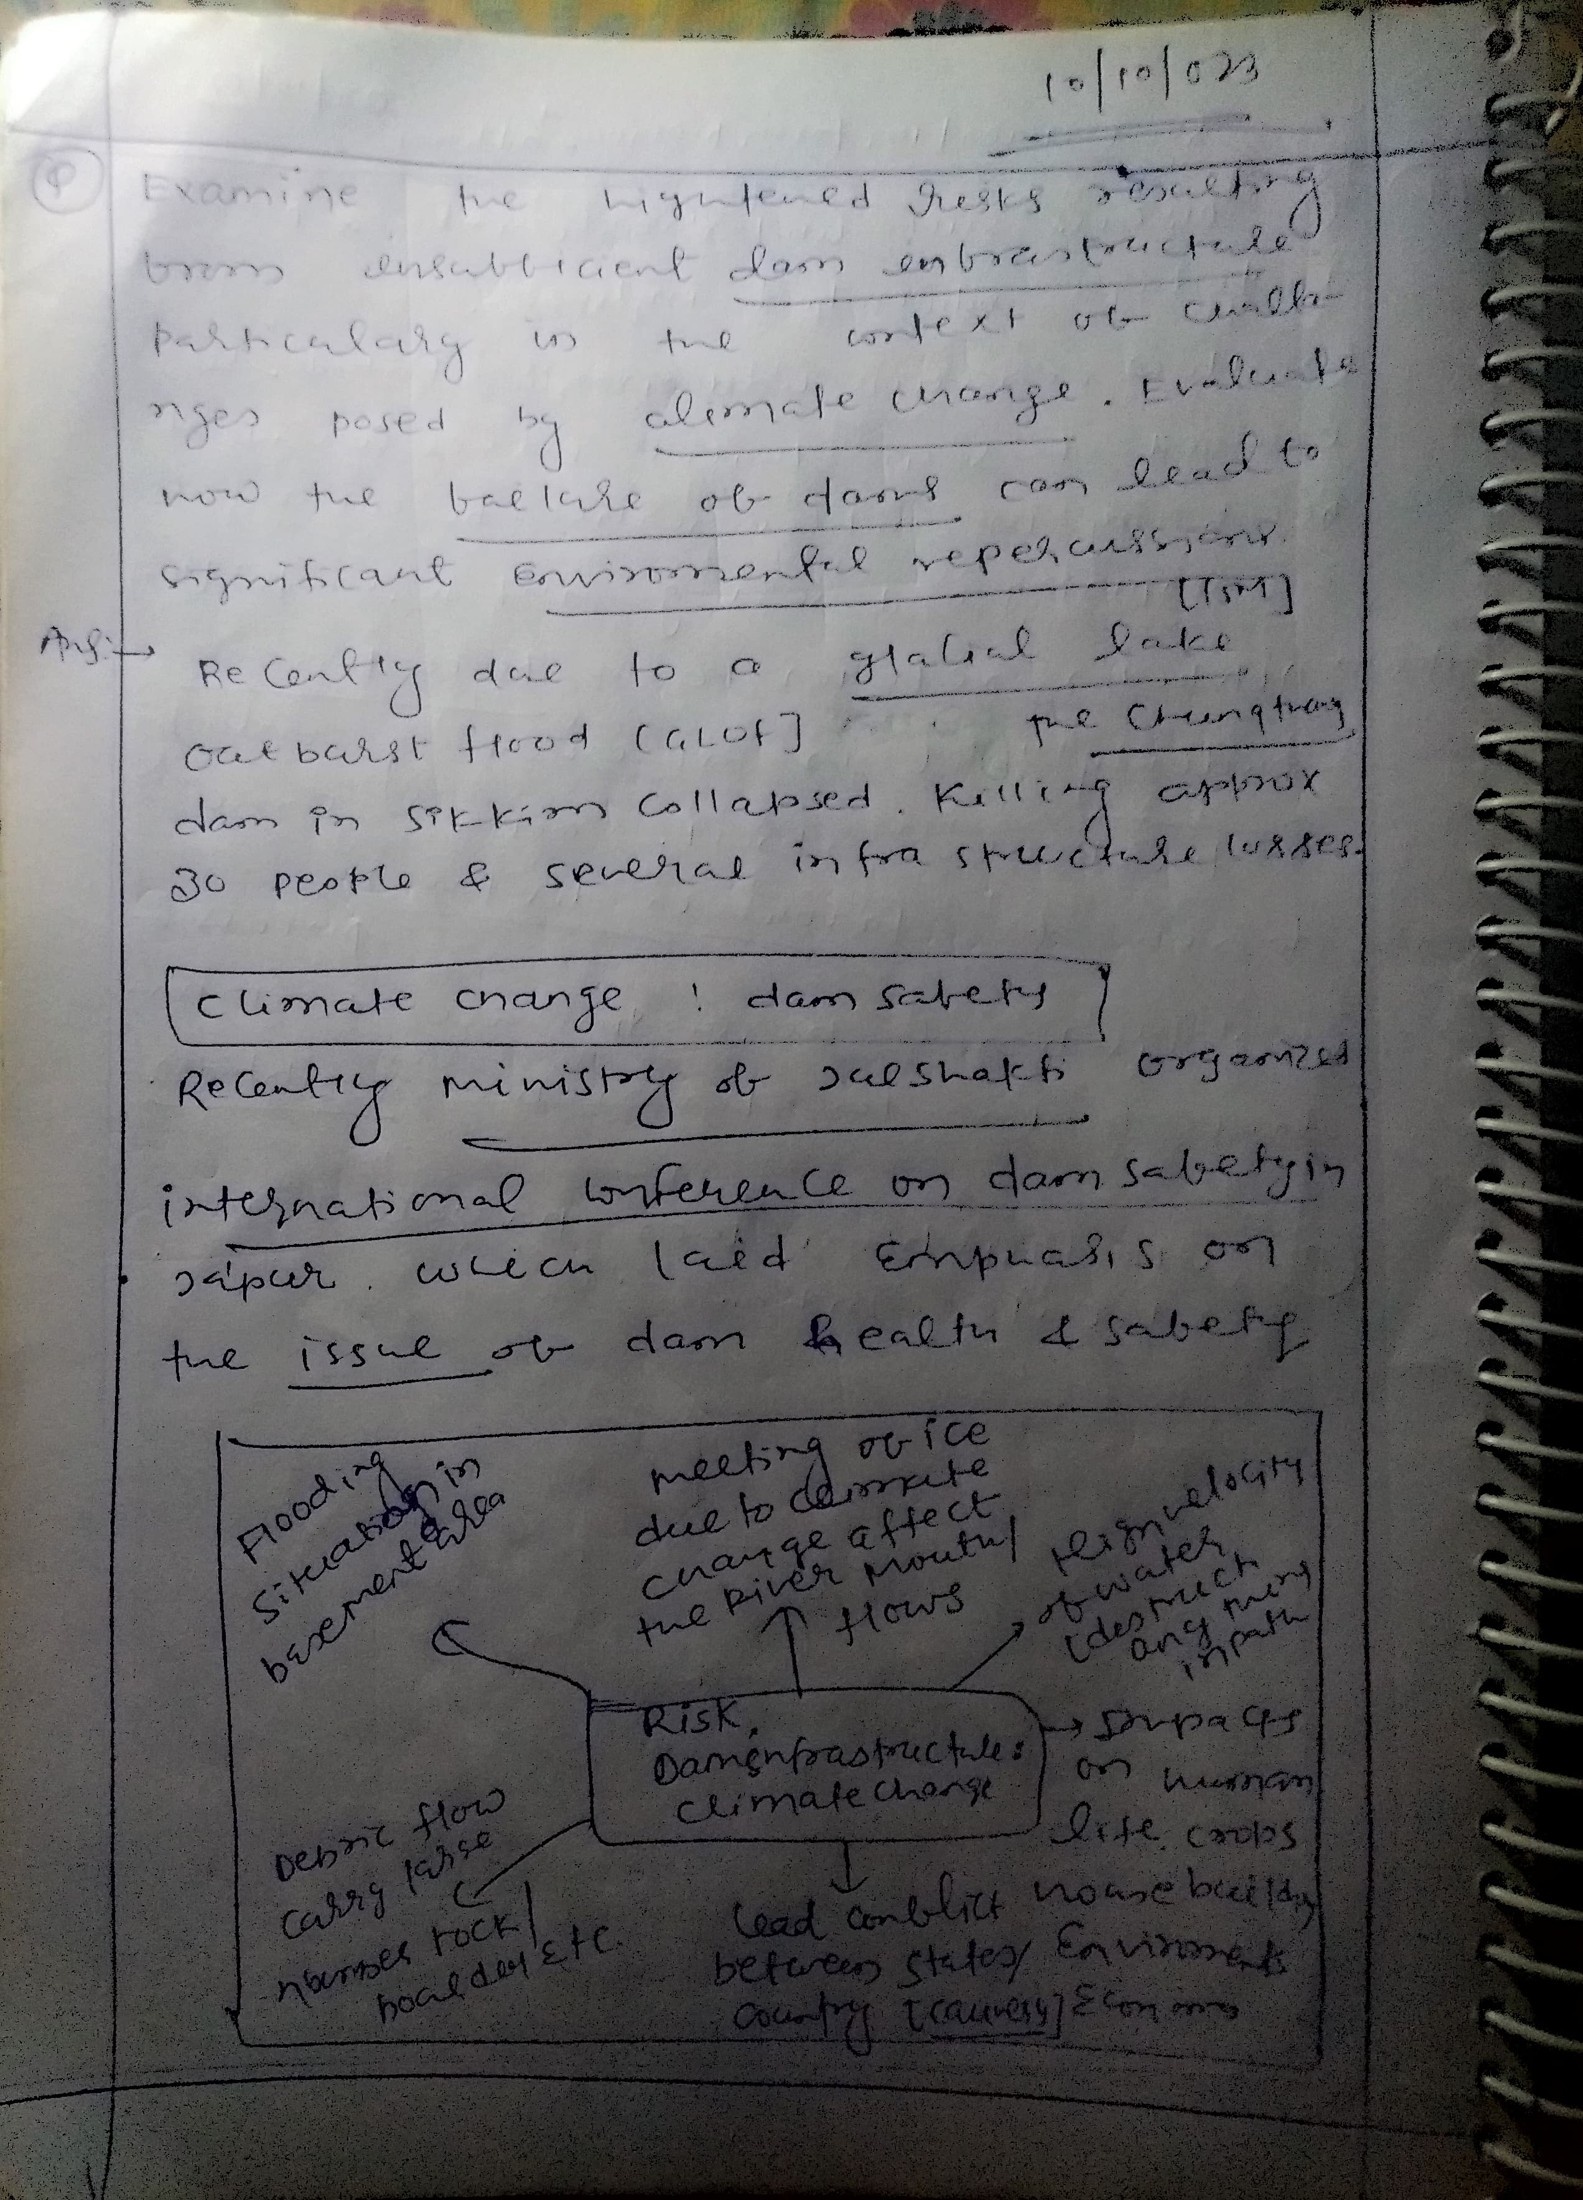 10/10/023
Q Examine the hightened risks resulting
from insufficient dam infrastructure
particularly in the context of challe-
nges posed by climate change. Evaluate
how the failure of dams can lead to
significant Enviromental repercussions.
[15M]
Ans:→ Recently due to a glacial lake
outburst flood [GLOF] the Chungthang
dam in Sikkim Collapsed. Killing approx
30 people & several infra structure losses.
Climate change : dam safety
Recently ministry of Jalshakti organized
international conference on dam safety in
Jaipur. which laid Emphasis on
the issue of dam health & safety
Flooding
Situation in
basement area
melting of ice
due to climate
change affect
the River mouth/
flows
High velocity
of water
(destruct
any thing
inpath
Risk.
Dam infrastructure:
climate change
→ Impacts
on human
life. crops
house building
Environment
Economy
Debric flow
carry large
numbers rock/
boulder Etc.
lead conflict
between states/
country [cauvery]